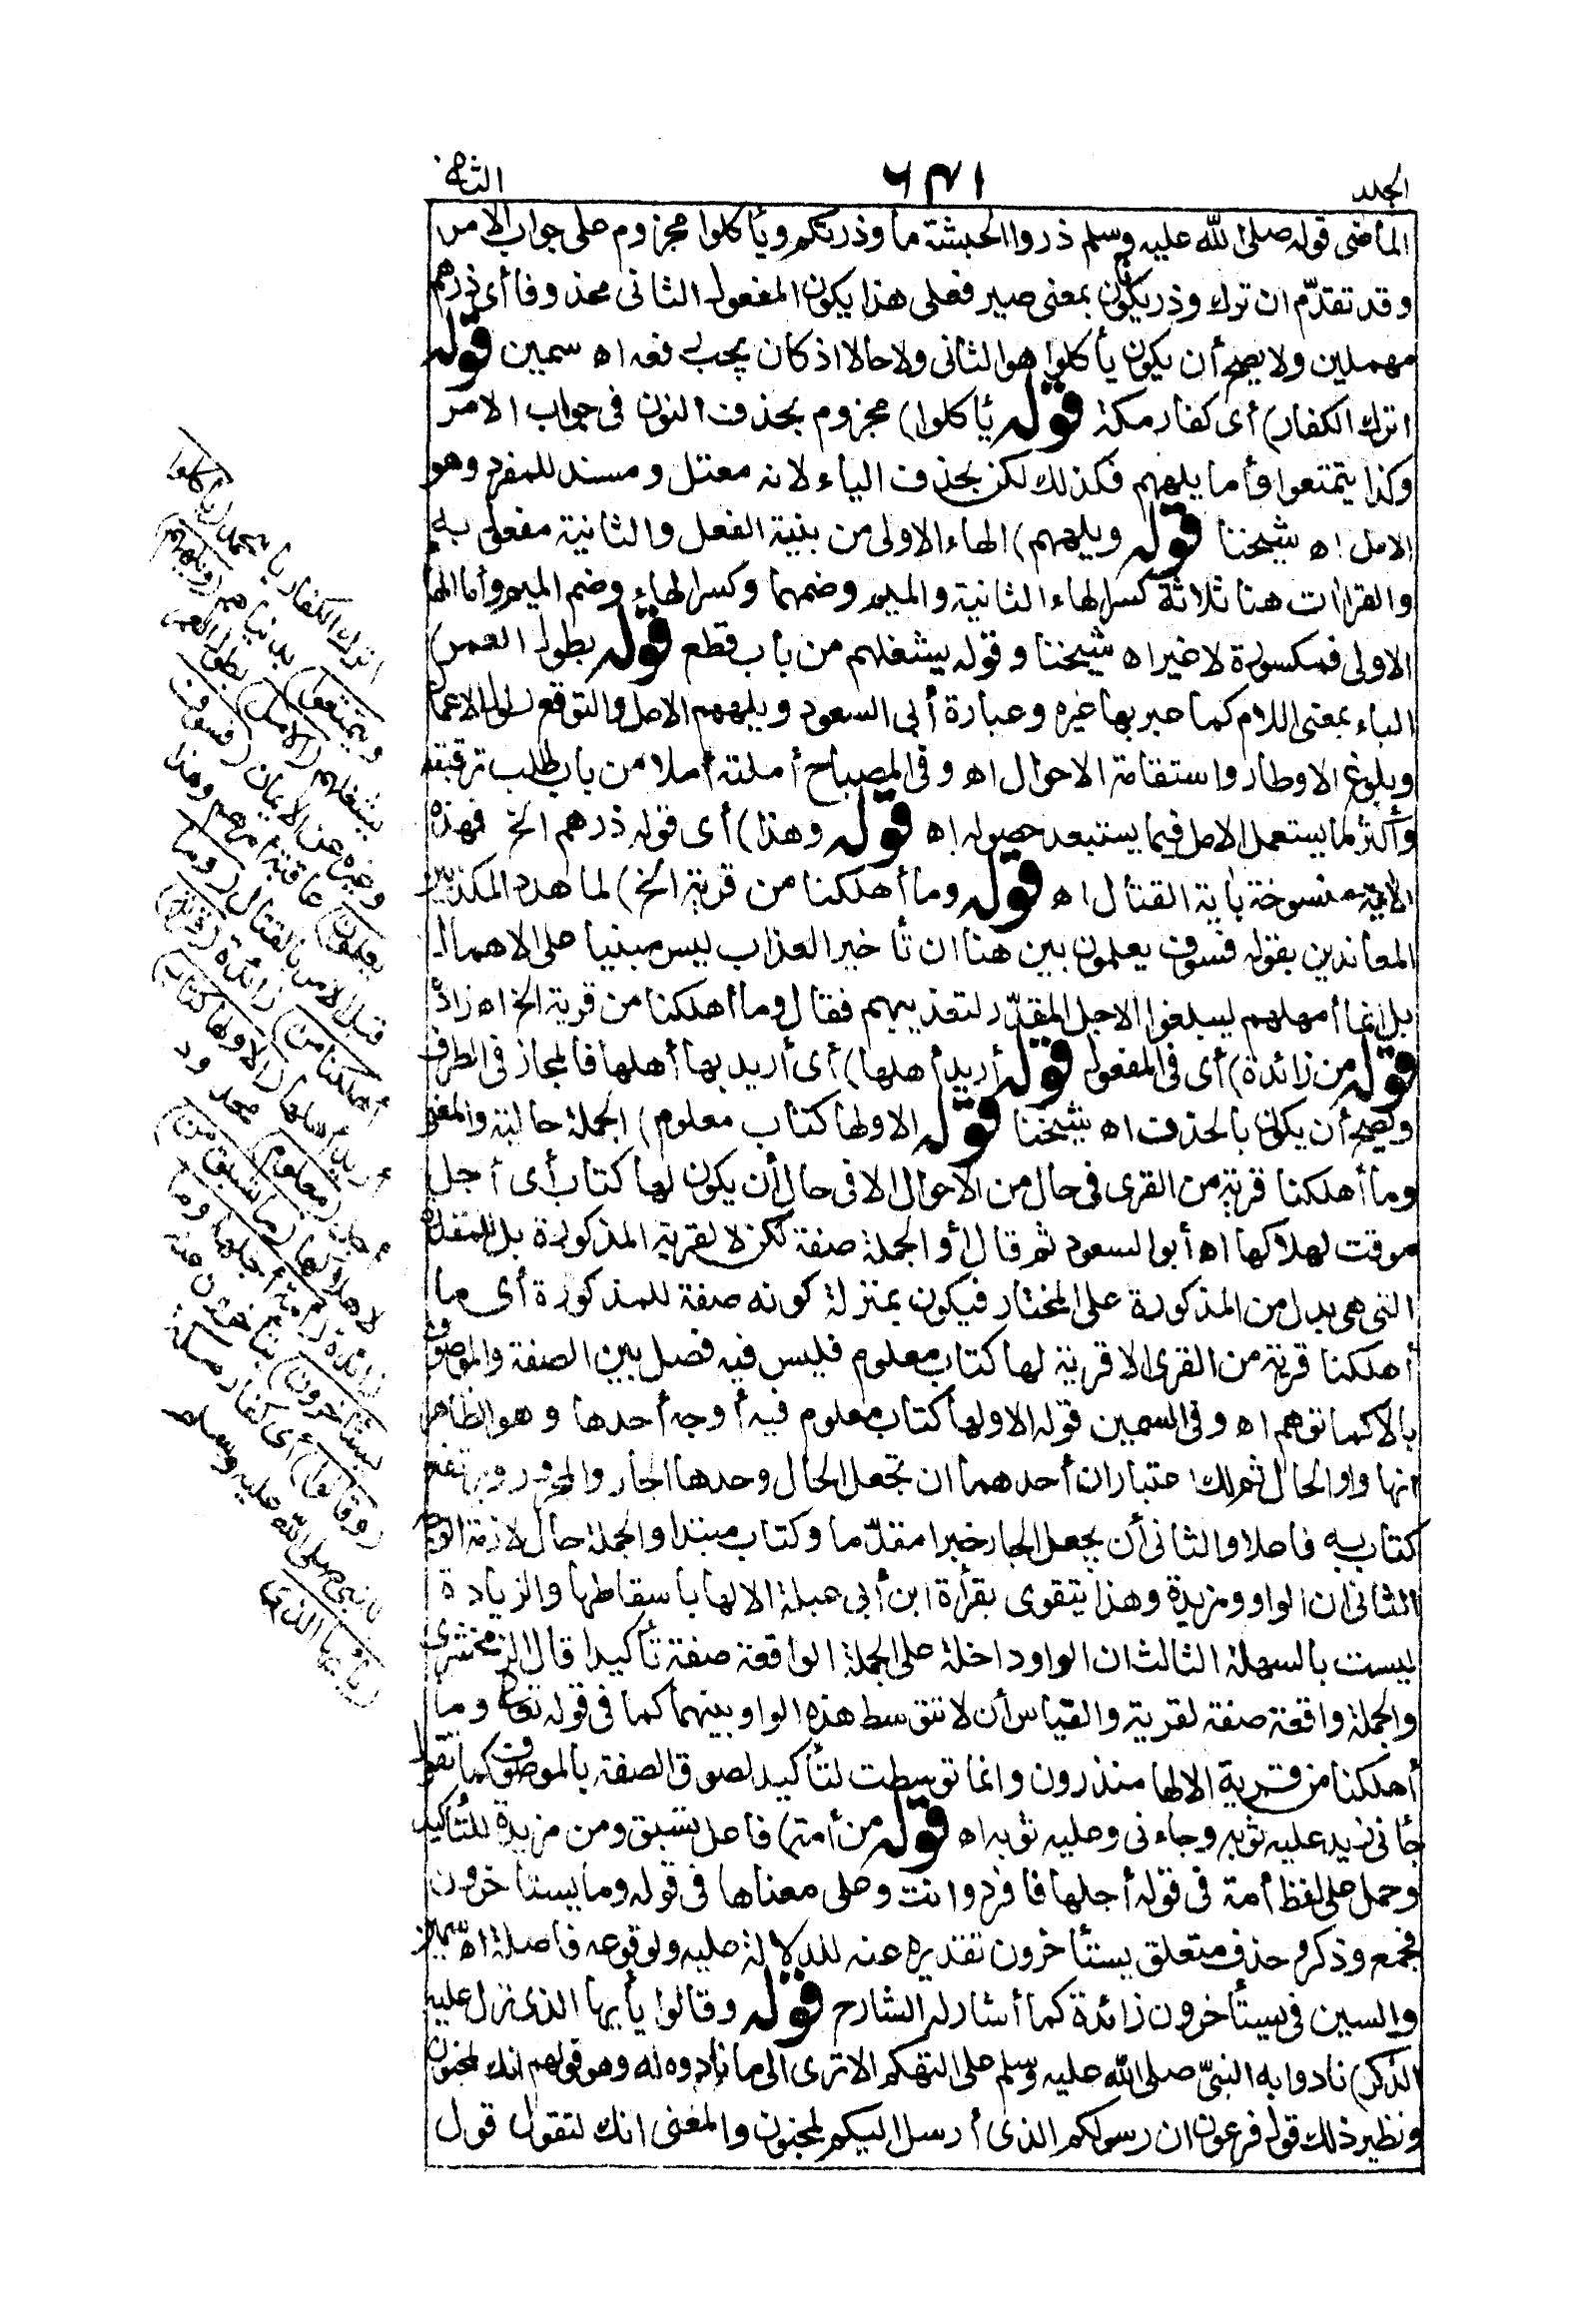 الجلد
٦٣١
الثانى
الماضى قوله صلى الله عليه وسلم ذروا الحبشة ما وذرتكم ويأكلوا مجزوم على جواب الامر
وقد تقدّم ان ترك وذر يكون بمعنى صير فعلى هذا يكون المفعول الثانى محذوفا أى ذرهم
مهملين ولا يصح أن يكون يأكلوا هو الثانى ولا حالا اذ كان يجب رفعه اه سمين قوله
اترك الكفار) أى كفار مكة قوله يأكلوا) مجزوم بحذف النون فى جواب الامر
وكذا يتمتعوا وأما يلههم فكذلك لكن بحذف الياء لانه معتل ومسند للمفرد وهو
الامل اه شيخنا قوله ويلههم) الهاء الاولى من بنية الفعل والثانية مفعول به
والقراآت هنا ثلاثة كسر الهاء الثانية والميم وضمهما وكسر الهاء وضم الميم وأما الهاء
الاولى فمكسورة لا غير اه شيخنا وقوله يشغلهم من باب قطع قوله بطول العمر)
الباء بمعنى اللام كما عبر بها غيره وعبارة أبى السعود ويلههم الامل والتوقع لطول الاعمار
وبلوغ الاوطار واستقامة الاحوال اه وفى المصباح أملته أملا من باب طلب ترقبته
وأكثر ما يستعمل الامل فيما يستبعد حصوله اه قوله وهذا) أى قوله ذرهم الخ فهذه
الاية منسوخة بأية القتال اه قوله وما أهلكنا من قرية الخ) لما هدد المكذبين
المعاندين بقوله فسوف يعلمون بين هنا ان تأخير العذاب ليس مبنيا على الاهمال
بل انما أمهلهم ليبلغوا الاجل المقدّر لتعذيبهم فقال وما أهلكنا من قرية الخ اه زاده
قوله من زائدة) أى فى المفعول قوله أريد أهلها) أى أريد بها أهلها فالمجاز فى الظرف
ويصح أن يكون بالحذف اه شيخنا قوله الا ولها كتاب معلوم) الجملة حالية والمعنى
وما أهلكنا قرية من القرى فى حال من الاحوال الا فى حال أن يكون لها كتاب أى أجل
موقت لهلاكها اه أبو السعود ثم قال أو الجملة صفة لكن لا لقرية المذكورة بل للمقدرة
التى هى بدل من المذكورة على المختار فيكون بمنزلة كونه صفة للمذكورة أى ما
أهلكنا قرية من القرى الا قرية لها كتاب معلوم فليس فيه فصل بين الصفة والموصوف
بالا كما توهم اه وفى السمين قوله الا ولها كتاب معلوم فيه أوجه أحدها وهو الظاهر
انها واو الحال ثم لك اعتباران أحدهما ان تجعل الحال وحدها الجار والمجرور ويرتفع
كتاب به فاعلا والثانى أن يجعل الجار خبرا مقدّما وكتاب مبتدا والجملة حال لازمة الوجه
الثانى ان الواو مزيدة وهذا يتقوى بقرأة ابن أبى عبلة الا لها باسقاطها والزيادة
ليست بالسهلة الثالث ان الواو داخلة على الجملة الواقعة صفة تأكيدا قال الزمخشرى
والجملة واقعة صفة لقرية والقياس أن لا تتوسط هذه الواو بينهما كما فى قوله تعالى وما
أهلكنا من قرية الا لها منذرون وانما توسطت لتأكيد لصوق الصفة بالموصوف كما تقول
جاءنى زيد عليه ثوبه وجاءنى وعليه ثوبه اه قوله من أمة) فاعل تسبق ومن مزيدة للتأكيد
وحمل على لفظ أمة فى قوله أجلها فافرد وانث وعلى معناها فى قوله وما يستأخرون
فجمع وذكر وحذف متعلق يستأخرون تقديره عنه للدلالة عليه ولوقوعه فاصلة اه سمين
والسين فى يستأخرون زائدة كما أشار له الشارح قوله وقالوا يأيها الذى نزل عليه
الذكر) نادوا به النبىّ صلى الله عليه وسلم على التهكم الا ترى الى ما نادوه له وهو قولهم انك لمجنون
ونظير ذلك قول فرعون ان رسولكم الذى أرسل اليكم لمجنون والمعنى انك لتقول قول
اترك الكفار يا محمد (يأكلوا
ويتمتعوا) بدنياهم (ويلههم)
يشغلهم (الامل) بطول العمر
وغيره عن الايمان (فسوف
يعلمون) عاقبة أمرهم وهذا
قبل الامر بالقتال (وما
أهلكنا من) زائدة (قرية)
أريد أهلها (الا ولها كتاب)
أجل (معلوم) محدود
لاهلاكها (ما تسبق من)
زائدة (أمة أجلها وما
يستأخرون) يتأخرون عنه
(وقالوا) أى كفار مكة
للنبى صلى الله عليه وسلم
(يأيها الذى